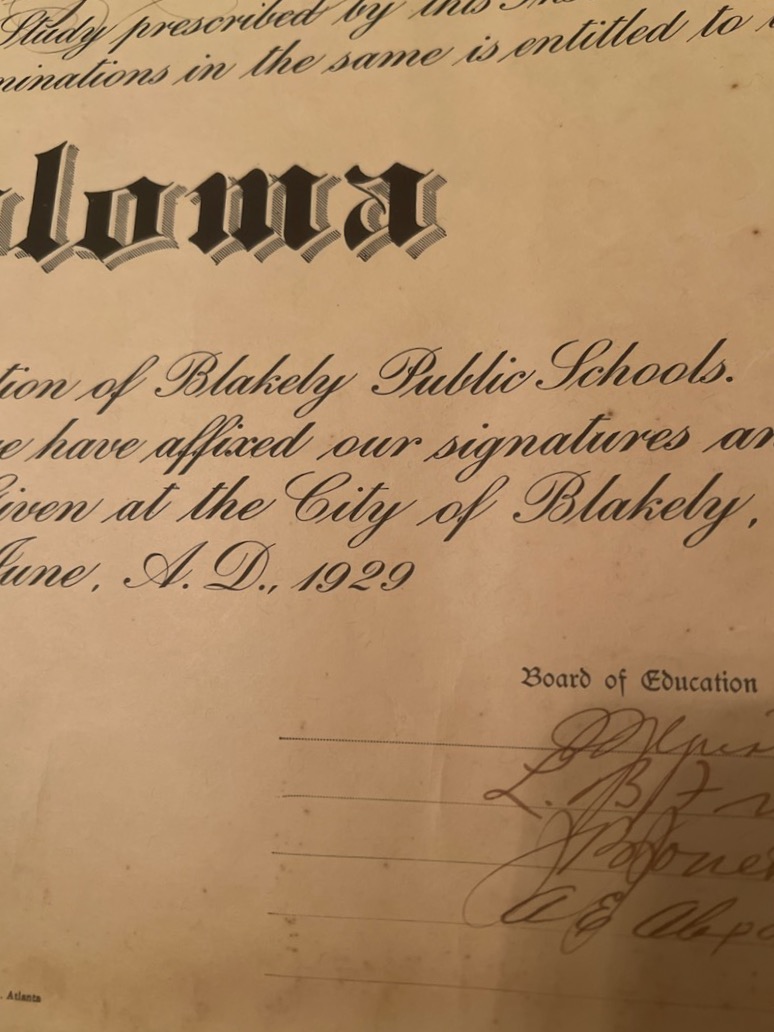 Study prescribed by this
minations in the same is entitled to
loma
tion of Blakely Public Schools.
e have affixed our signatures an
iven at the City of Blakely,
June, A. D., 1929
Board of Education
L. B. F
B Jones
A E Alex
. Atlanta